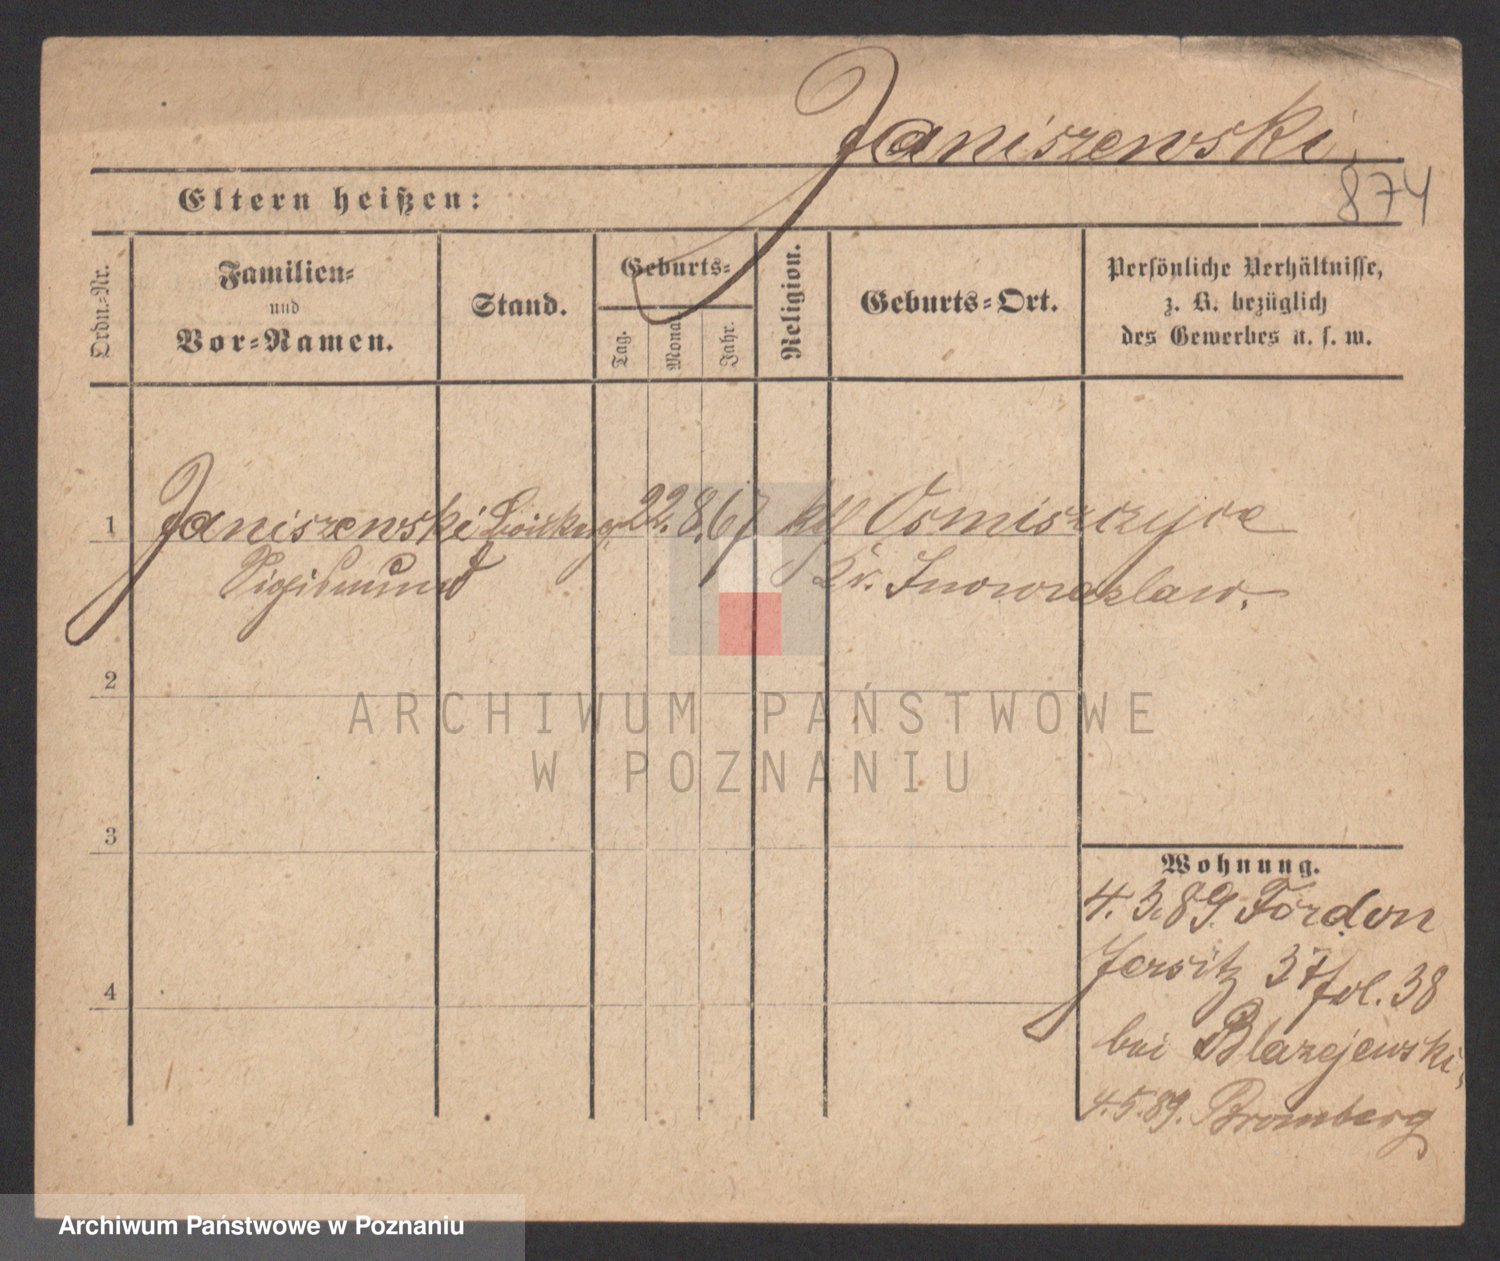 Janiszewski.
874
Eltern heißen:
Ordn.-Nr.
Familien-
und
Vor-Namen.
Stand.
Geburts-
Tag.
Monat
Jahr.
Religion.
Geburts-Ort.
Persönliche Verhältnisse,
z. B. bezüglich
des Gewerbes u. s. w.
1 Janiszewski 22. 8. 67 kth Osmiszczyce
Sigismund Kr. Inowrazlaw.
2
3
4
Wohnung.
4. 3. 89. Fordon
Jersitz 37 fol. 38
bei Blazejewski,
4. 5. 89. Bromberg
ARCHIWUM PAŃSTWOWE
W POZNANIU
Archiwum Państwowe w Poznaniu